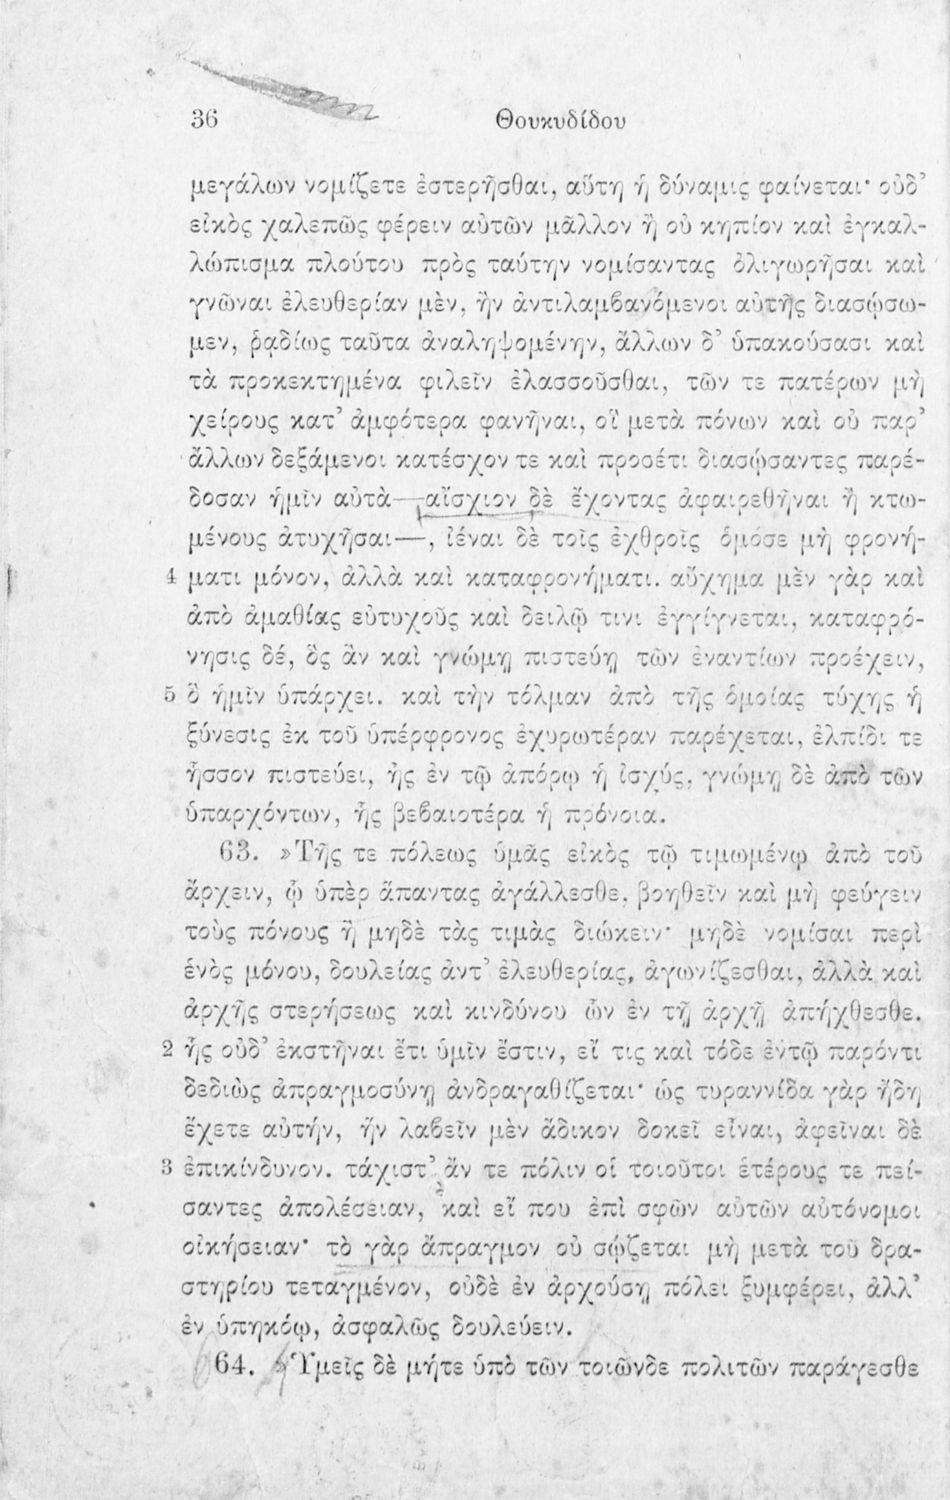 36 Θουκυδίδου
μεγάλων νομίζετε ἐστερῆσθαι, αὕτη ἡ δύναμις φαίνεται· οὐδ’
εἰκὸς χαλεπῶς φέρειν αὐτῶν μᾶλλον ἢ οὐ κηπίον καὶ ἐγκαλ-
λώπισμα πλούτου πρὸς ταύτην νομίσαντας ὀλιγωρῆσαι καὶ
γνῶναι ἐλευθερίαν μὲν, ἢν ἀντιλαμβανόμενοι αὐτῆς διασώσω-
μεν, ῥᾳδίως ταῦτα ἀναληψομένην, ἄλλων δ’ ὑπακούσασι καὶ
τὰ προκεκτημένα φιλεῖν ἐλασσοῦσθαι, τῶν τε πατέρων μὴ
χείρους κατ’ ἀμφότερα φανῆναι, οἳ μετὰ πόνων καὶ οὐ παρ’
ἄλλων δεξάμενοι κατέσχον τε καὶ προσέτι διασώσαντες παρέ-
δοσαν ἡμῖν αὐτὰ—αἴσχιον δὲ ἔχοντας ἀφαιρεθῆναι ἢ κτω-
μένους ἀτυχῆσαι—, ἰέναι δὲ τοῖς ἐχθροῖς ὁμόσε μὴ φρονή-
4 ματι μόνον, ἀλλὰ καὶ καταφρονήματι. αὔχημα μὲν γὰρ καὶ
ἀπὸ ἀμαθίας εὐτυχοῦς καὶ δειλῷ τινι ἐγγίγνεται, καταφρό-
νησις δέ, ὃς ἂν καὶ γνώμῃ πιστεύῃ τῶν ἐναντίων προέχειν,
5 ὃ ἡμῖν ὑπάρχει. καὶ τὴν τόλμαν ἀπὸ τῆς ὁμοίας τύχης ἡ
ξύνεσις ἐκ τοῦ ὑπέρφρονος ἐχυρωτέραν παρέχεται, ἐλπίδι τε
ἧσσον πιστεύει, ἧς ἐν τῷ ἀπόρῳ ἡ ἰσχύς, γνώμῃ δὲ ἀπὸ τῶν
ὑπαρχόντων, ἧς βεβαιοτέρα ἡ πρόνοια.
63. »Τῆς τε πόλεως ὑμᾶς εἰκὸς τῷ τιμωμένῳ ἀπὸ τοῦ
ἄρχειν, ᾧ ὑπὲρ ἅπαντας ἀγάλλεσθε, βοηθεῖν καὶ μὴ φεύγειν
τοὺς πόνους ἢ μηδὲ τὰς τιμὰς διώκειν· μηδὲ νομίσαι περὶ
ἑνὸς μόνου, δουλείας ἀντ’ ἐλευθερίας, ἀγωνίζεσθαι, ἀλλὰ καὶ
ἀρχῆς στερήσεως καὶ κινδύνου ὧν ἐν τῇ ἀρχῇ ἀπήχθεσθε.
2 ἧς οὐδ’ ἐκστῆναι ἔτι ὑμῖν ἔστιν, εἴ τις καὶ τόδε ἐν τῷ παρόντι
δεδιὼς ἀπραγμοσύνῃ ἀνδραγαθίζεται· ὡς τυραννίδα γὰρ ἤδη
ἔχετε αὐτήν, ἣν λαβεῖν μὲν ἄδικον δοκεῖ εἶναι, ἀφεῖναι δὲ
3 ἐπικίνδυνον. τάχιστ’ ἄν τε πόλιν οἱ τοιοῦτοι ἑτέρους τε πεί-
σαντες ἀπολέσειαν, καὶ εἴ που ἐπὶ σφῶν αὐτῶν αὐτόνομοι
οἰκήσειαν· τὸ γὰρ ἄπραγμον οὐ σῴζεται μὴ μετὰ τοῦ δρα-
στηρίου τεταγμένον, οὐδὲ ἐν ἀρχούσῃ πόλει ξυμφέρει, ἀλλ’
ἐν ὑπηκόῳ, ἀσφαλῶς δουλεύειν.
64. »Ὑμεῖς δὲ μήτε ὑπὸ τῶν τοιῶνδε πολιτῶν παράγεσθε